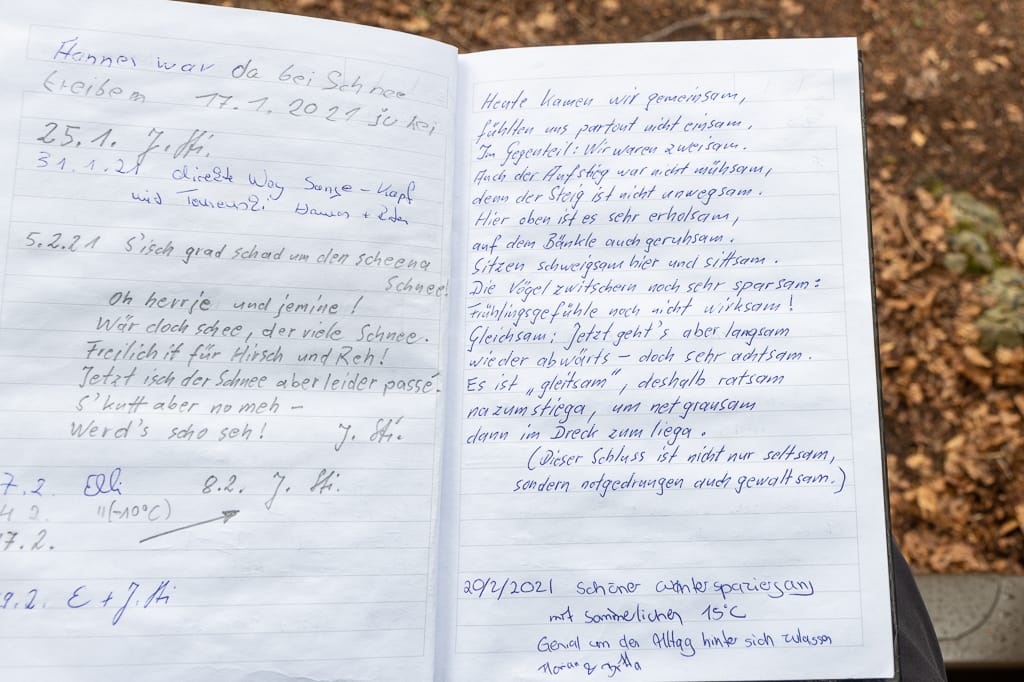 Hannes war da bei Schnee
treibem 17.1.2021 ju hei
25.1. J. Sti.
31.1.21 direkte Way Sange-Kopf
mit
5.2.21 S'isch grad schad um den scheena
Schnee!
Oh herrje und jemine!
Wär doch schee, der viele Schnee.
Freilich it für Hirsch und Reh!
Jetzt isch der Schnee aber leider passé.
S'kutt aber no meh –
Werd's scho seh! J. Sti.
7.2. Elli 8.2. J. Sti.
4.2. "(-10°C)
17.2.
19.2. E + J. Sti
Heute kamen wir gemeinsam,
fühlten uns partout nicht einsam.
Im Gegenteil: Wir waren zweisam.
Auch der Aufstieg war nicht mühsam,
denn der Steig ist nicht unwegsam.
Hier oben ist es sehr erholsam,
auf dem Bänkle auch geruhsam.
Sitzen schweigsam hier und sittsam.
Die Vögel zwitschern noch sehr sparsam:
Frühlingsgefühle noch nicht wirksam!
Gleichsam: Jetzt geht's aber langsam
wieder abwärts – doch sehr achtsam.
Es ist „gleitsam", deshalb ratsam
nazumstiega, um net grausam
dann im Dreck zum liega.
(Dieser Schluss ist nicht nur seltsam,
sondern notgedrungen auch gewaltsam.)
20/2/2021 Schöner Winterspaziergang
mit sommerlichen 15°C
Genial um den Alltag hinter sich zulassen